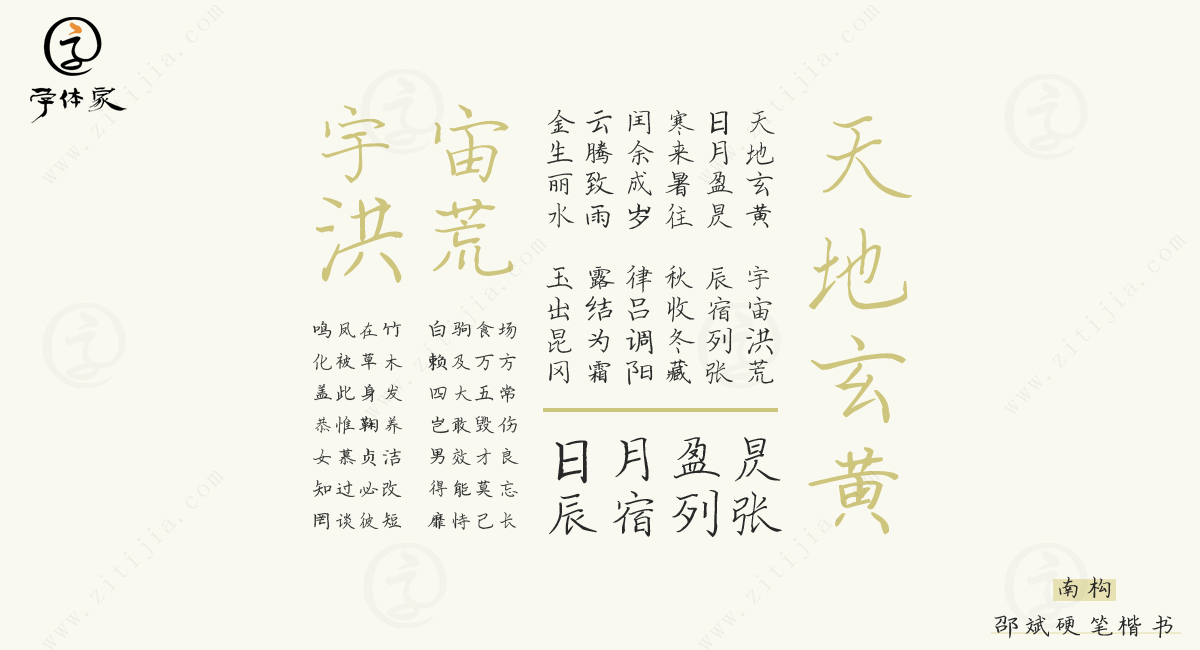 字体家
天地玄黄
宇宙
洪荒
天地玄黄
宇宙洪荒
日月盈昃
辰宿列张
寒来暑往
秋收冬藏
闰余成岁
律吕调阳
云腾致雨
露结为霜
金生丽水
玉出昆冈
日月盈昃
辰宿列张
鸣凤在竹 白驹食场
化被草木 赖及万方
盖此身发 四大五常
恭惟鞠养 岂敢毁伤
女慕贞洁 男效才良
知过必改 得能莫忘
罔谈彼短 靡恃己长
南构
邵斌硬笔楷书
www.zitijia.com
www.zitijia.com
www.zitijia.com
www.zitijia.com
www.zitijia.com
www.zitijia.com